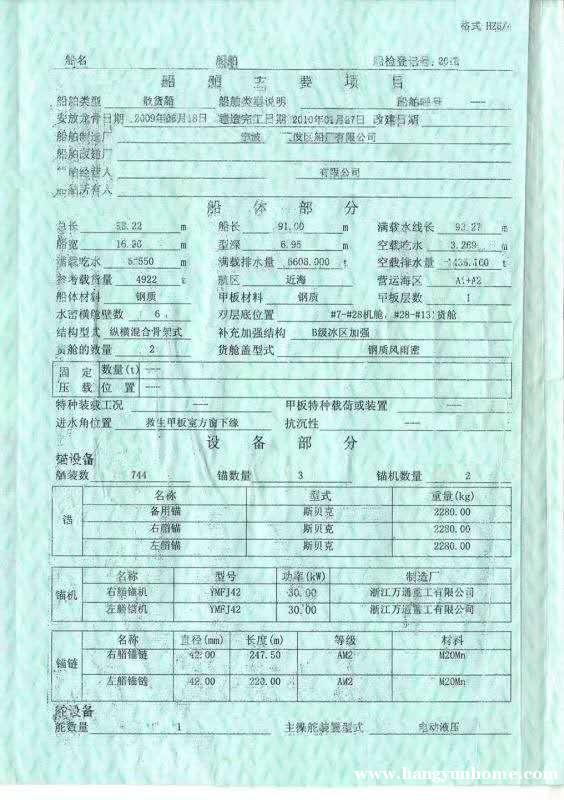 格式 HZ
船名 船舶 船检登记号
船舶主要项目
船舶类型 散货船 船舶类型说明 船舶呼号 ——
安放龙骨日期 2009年06月18日 建造完工日期 2010年01月27日 改建日期
船舶制造厂 宁波 船厂有限公司
船舶改建厂
船舶经营人 有限公司
船舶所有人
船体部分
总长 22 m 船长 91.00 m 满载水线长 93.27 m
船宽 m 型深 6.95 m 空载吃水 3.269 m
满载吃水 550 m 满载排水量 6608.000 t 空载排水量 t
参考载货量 4922 t 航区 近海 营运海区 A1+A2
船体材料 钢质 甲板材料 钢质 甲板层数 1
水密横舱壁数 6 双层底位置 #7-#28机舱，#28-#131货舱
结构型式 纵横混合骨架式 补充加强结构 B级冰区加强
货舱的数量 2 货舱盖型式 钢质风雨密
固定压载 数量(t) ——
位置 ——
特种装载工况 —— 甲板特种载荷或装置 ——
进水角位置 救生甲板室方窗下缘 抗沉性 ——
设备部分
锚设备
舾装数 744 锚数量 3 锚机数量 2
锚 名称 型式 重量(kg)
备用锚 斯贝克 2280.00
右艏锚 斯贝克 2280.00
左艏锚 斯贝克 2280.00
锚机 名称 型号 功率(kW) 制造厂
右艏锚机 YMFJ42 30.00 浙江万通重工有限公司
左艏锚机 YMFJ42 30.00 浙江万通重工有限公司
锚链 名称 直径(mm) 长度(m) 等级 材料
右艏锚链 42.00 247.50 AM2 M20Mn
左艏锚链 42.00 220.00 AM2 M20Mn
舵设备
舵数量 1 主操舵装置型式 电动液压
www.hangyunhome.com